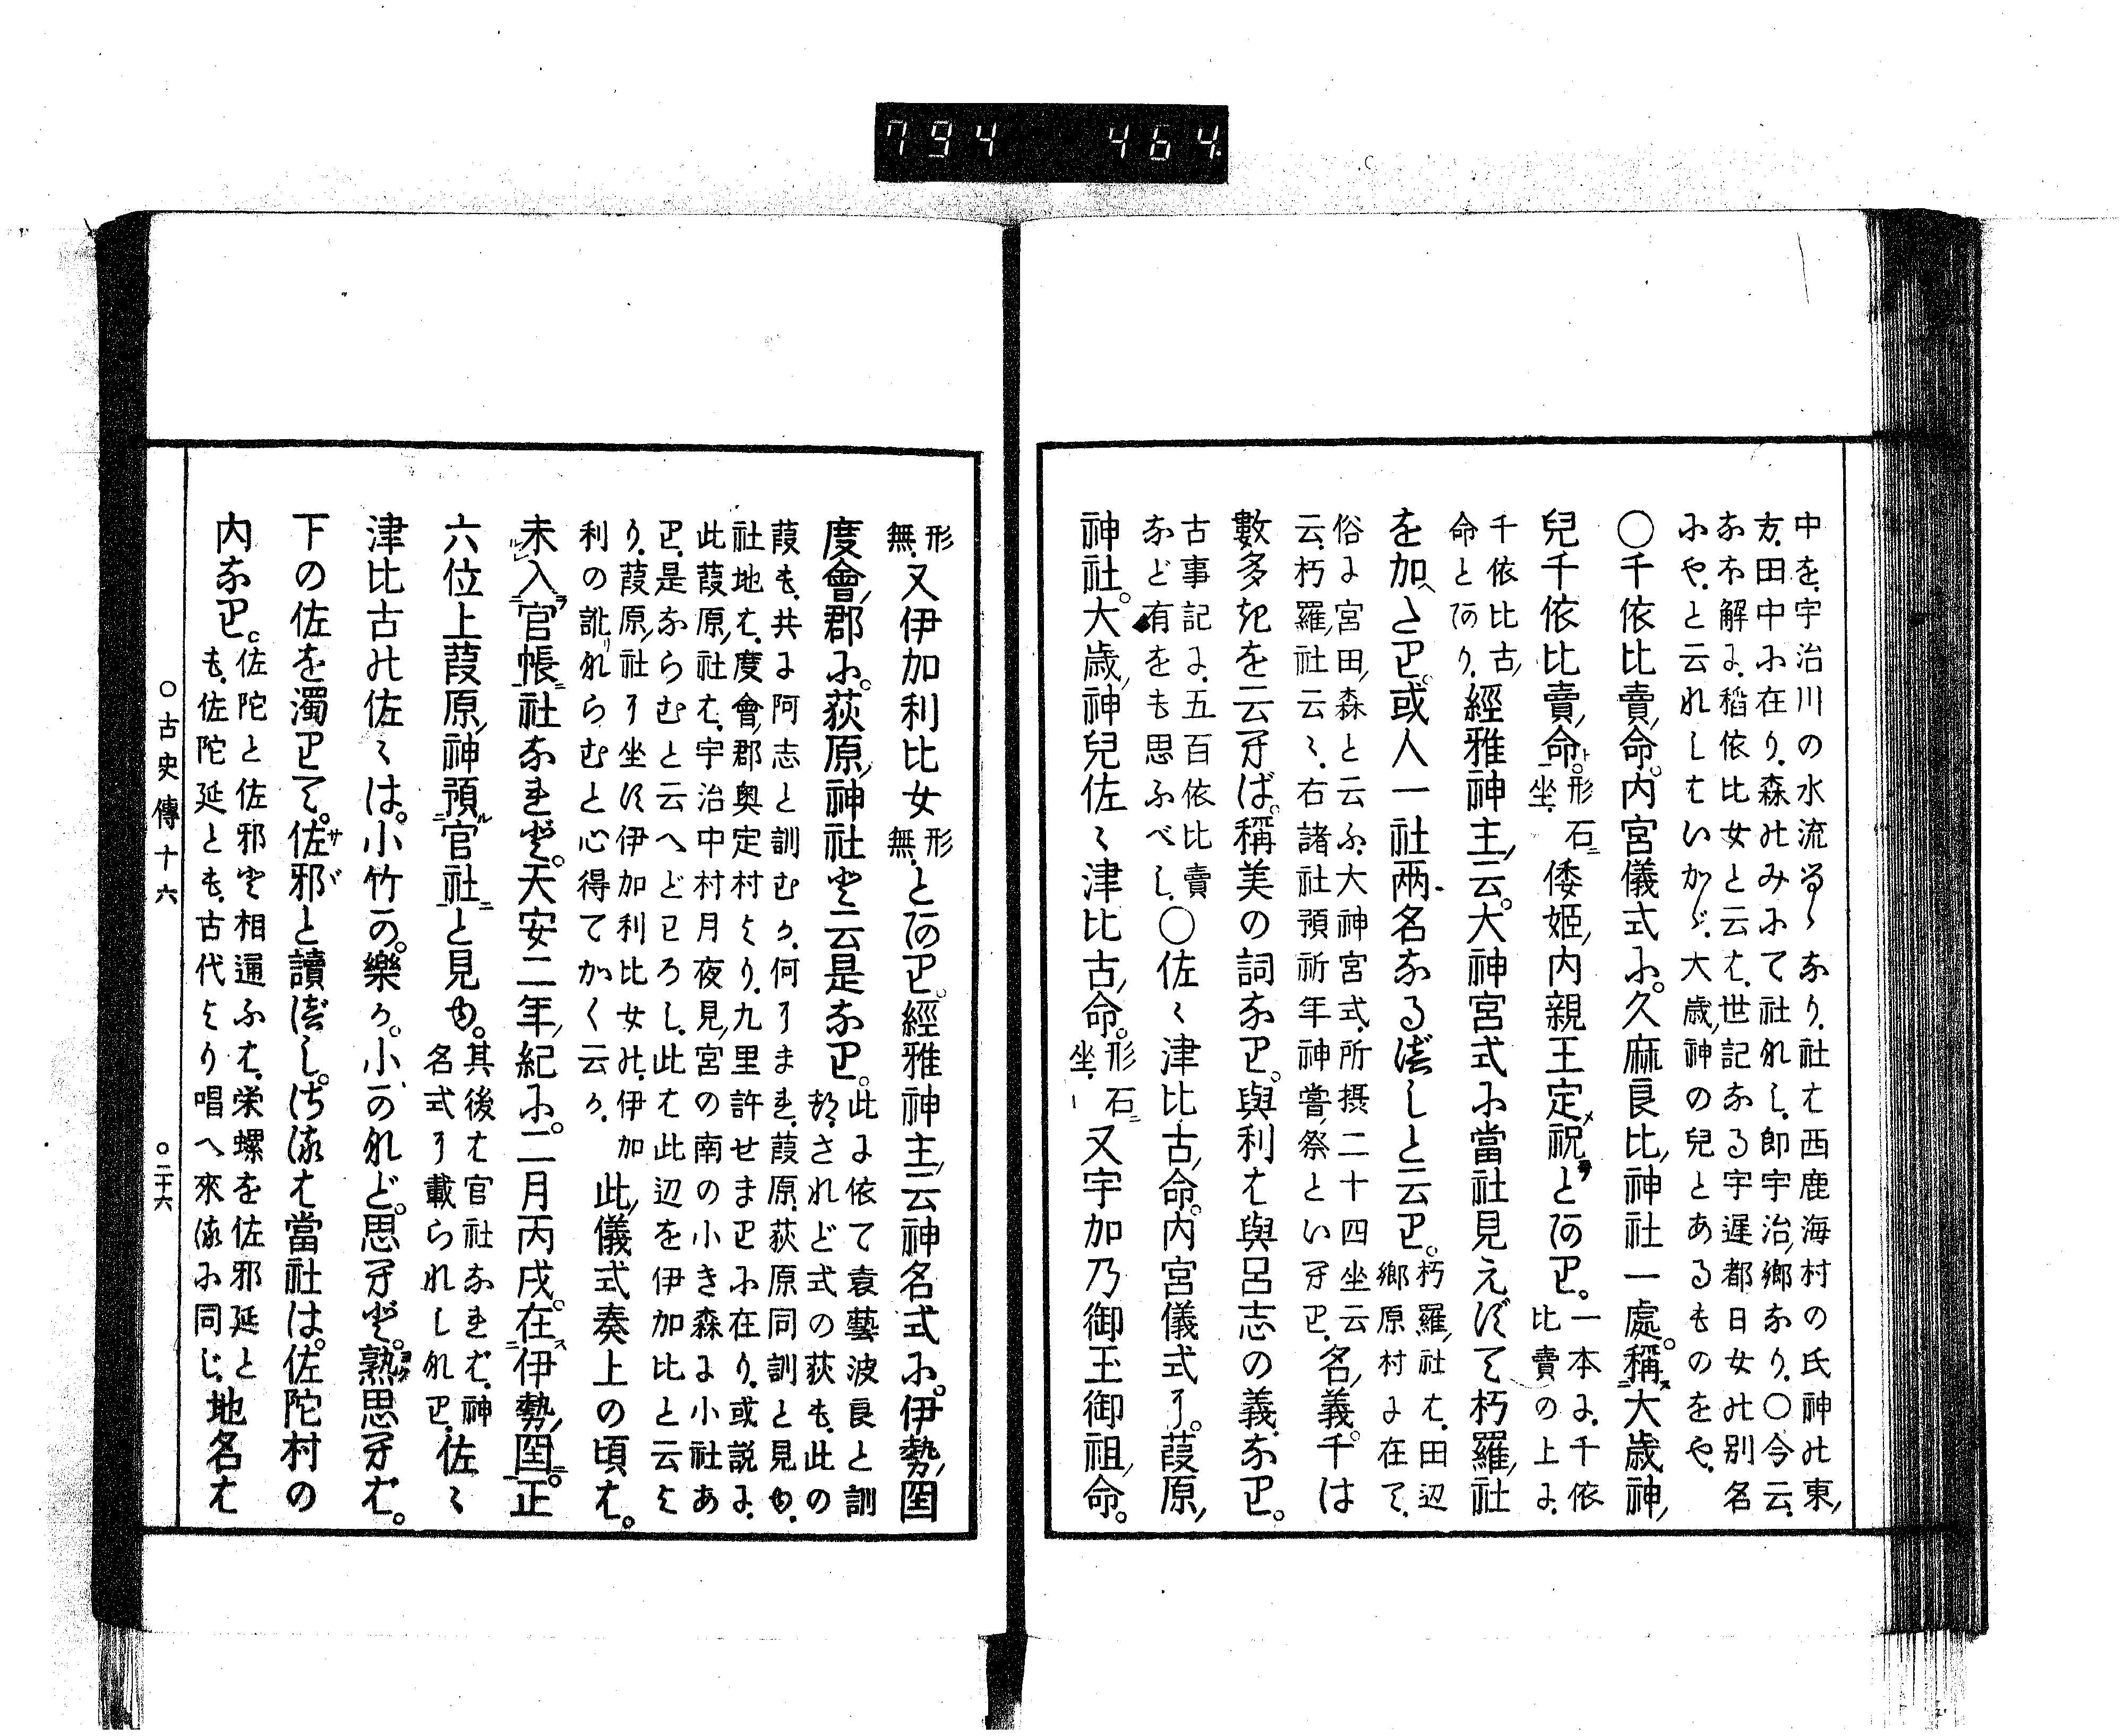 794 464
中を。宇治川の水流るゝなり。社は西鹿海村の氏神の東、
方。田中に在り。森のみにて社なし。即宇治鄕なり。〇今云。
なほ解に。稻依比女と云は。世記なる宇遲都日女の別名
にや。と云れしはいかゞ。大歲神の兒とあるものをや。
〇千依比賣命。内宮儀式に。久麻良比神社一處。稱大歲神
兒千依比賣命。形石坐。倭姬内親王定祝とあり。一本に。千依比賣の上に。
千依比古命とあり。經雅神主云。大神宮式に當社見えずて朽羅社
を加へたり。或人一社兩名なるべしと云り。朽羅社は。田辺鄕原村に在て。
俗に宮田森と云ふ。大神宮式。所攝二十四坐云云。朽羅社云〻。右諸社預祈年神嘗祭といへり。名義。千は
數多きを云へば。稱美の詞なり。與利は與呂志の義なり。
古事記に。五百依比賣など有をも思ふべし。〇佐〻津比古命。内宮儀式に。葭原
神社。大歲神兒佐〻津比古命。形石坐。又宇加乃御玉御祖命。
形無。又伊加利比女形無。とあり。經雅神主云神名式に。伊勢國
度會郡に。荻原神社と云是なり。此に依て袁藝波良と訓れ。されど式の荻も。此の
葭も。共に阿志と訓むか。何にまれ。葭原荻原同訓と見ゆ。
社地は。度會郡奧定村より。九里許せまりに在り。或說に。
此葭原社は。宇治中村月夜見宮の南の小き森に小社あ
り。是ならむと云へどわろし。此は此辺を伊加比と云よ
り。葭原社に坐す伊加利比女の。伊加
利の訛ならむと心得てかく云か。此儀式奏上の頃は。
未入官帳社なれど。天安二年紀に。二月丙戌。在伊勢國。正
六位上葭原神預官社と見ゆ。其後は官社なれば。神名式に載られしなり。佐〻
津比古の佐〻は。小竹か。樂か。小かなれど。思へど。熟思へば。
下の佐を濁りて。佐邪と讀べし。さるは當社は。佐陀村の
内なり。佐陀と佐邪と相通ふは。栄螺を佐邪延とも。佐陀延とも。古代より唱へ來るに同じ。地名は
〇古史傳十六 〇二十六